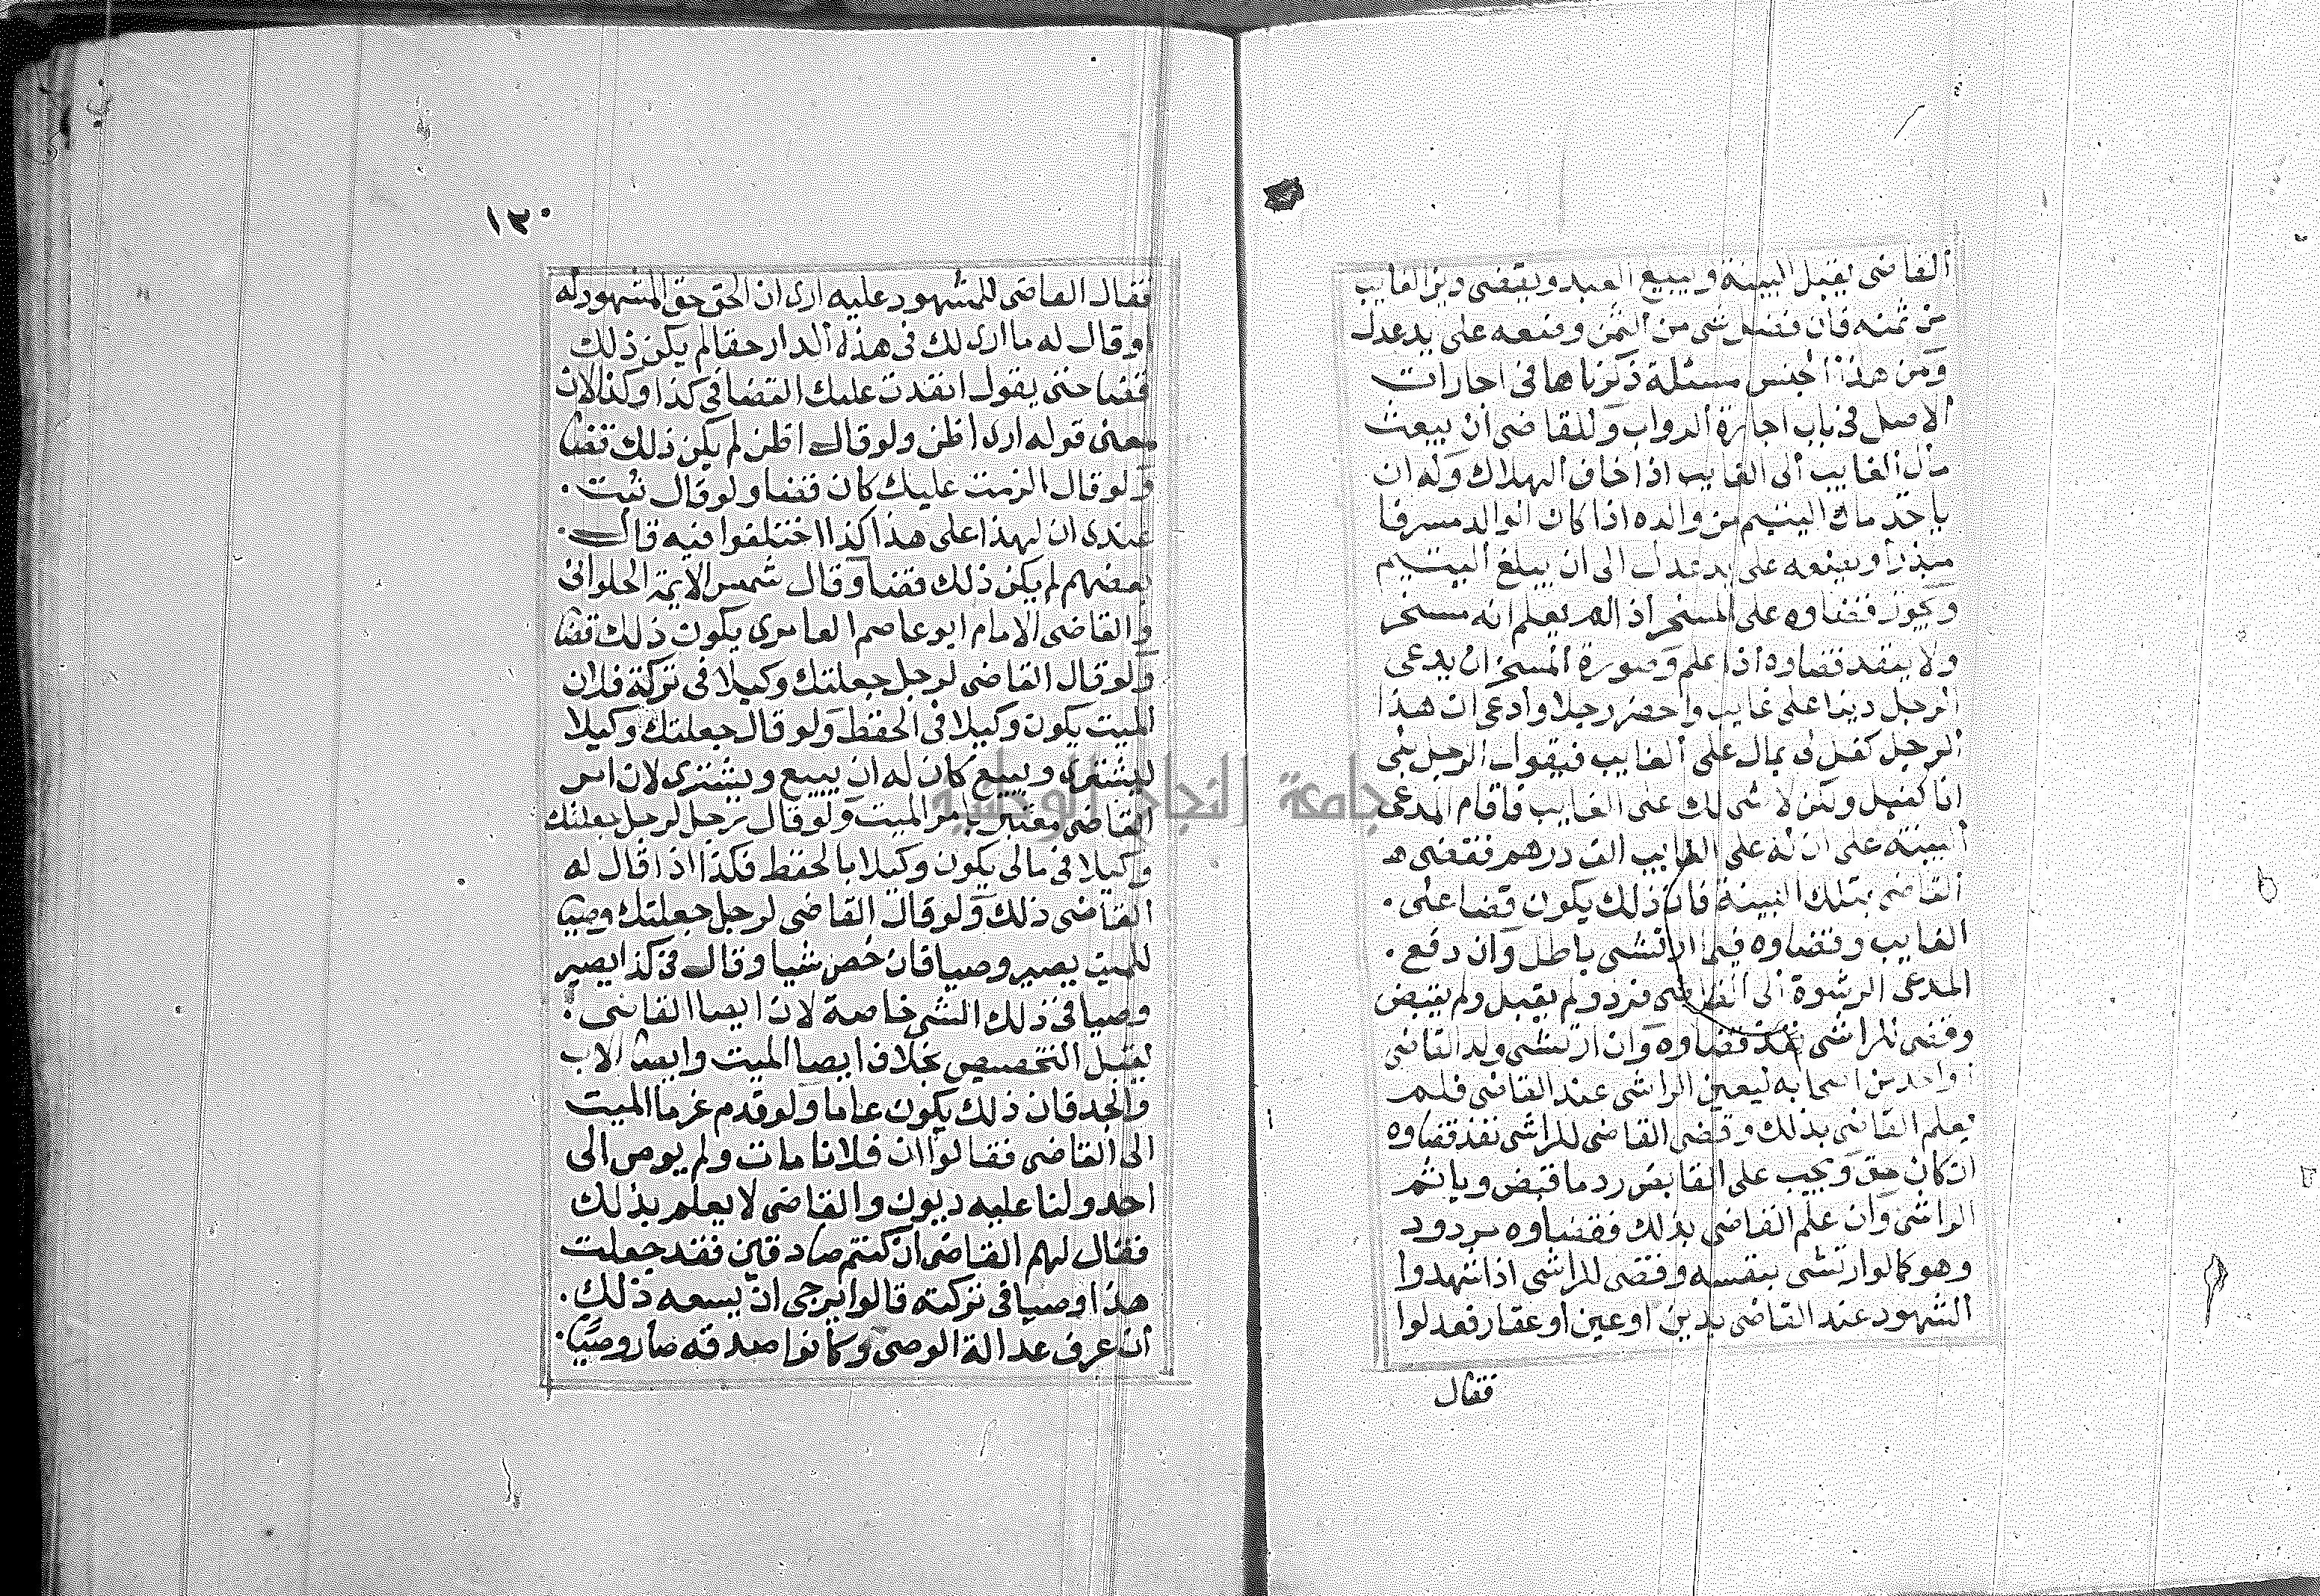 القاضى يقبل البينة ويبيع العبد ويقضى دين الغايب
من ثمنه فان فضل شى من الثمن وضعه على يد عدل
ومن هذا الجنس مسئلة ذكرناها فى اجارات
الاصل فى باب اجارة الدواب وللقاضى ان يبعث
مال الغايب الى الغايب اذا خاف الهلاك وله ان
ياخذ مال اليتيم من والده اذا كان الوالد مسرفا
مبذرا ويضعه على يد عدل الى ان يبلغ اليتيم
ويجوز قضاوه على المسخر اذا لم يعلم انه مسخر
ولا ينفذ قضاوه اذا علم وصورة المسخر ان يدعى
الرجل دينا على غايب واحضر رجلا وادعى ان هذا
الرجل كفل لى بمال على الغايب فيقول الرجل بلى
انا كفيل ولكن لا شى لك على الغايب فاقام المدعى
البينة على ان له على الغايب الف درهم فقضى
القاضى بتلك البينة فان ذلك يكون قضا على
الغايب وقضاوه فيما ارتشى باطل وان دفع
المدعى الرشوة الى القاضى فرد ولم يقبل ولم يقبض
وقضى للراشى نفذ قضاوه وان ارتشى ولد القاضى
او احد من اصحابه ليعين الراشى عند القاضى فلم
يعلم القاضى بذلك وقضى القاضى للراشى نفذ قضاوه
ان كان حق ويجب على القابض رد ما قبض وياثم
الراشى وان علم القاضى بذلك فقضاوه مردود
وهو كما لو ارتشى بنفسه وقضى للراشى اذا شهدوا
الشهود عند القاضى بدين او عين او عقار فعدلوا
فقال
١٣٠
فقال القاضى للمشهود عليه ارى ان الحق حق المشهود له
او قال له ما ارى لك فى هذه الدار حقا لم يكن ذلك
قضا حتى يقول انفدت عليك القضا فى كذا وكذا لان
معنى قوله ارى اظن ولو قال اظن لم يكن ذلك قضا
ولو قال الزمت عليك كان قضا ولو قال ثبت
عندى ان لهذا على هذا كذا اختلفوا فيه قال
بعضهم لم يكن ذلك قضا وقال شمس الايمة الحلوانى
والقاضى الامام ابو عاصم العامرى يكون ذلك قضا
ولو قال القاضى لرجل جعلتك وكيلا فى تركة فلان
الميت يكون وكيلا فى الحفظ ولو قال جعلتك وكيلا
ليشترى ويبيع كان له ان يبيع ويشترى لان امر
القاضى معتبر بامر الميت ولو قال رجل لرجل جعلتك
وكيلا فى مالى يكون وكيلا بالحفظ فكذا اذا قال له
القاضى ذلك ولو قال القاضى لرجل جعلتك وصيا
للميت يصير وصيا فان خص شيا وقال فى كذا يصير
وصيا فى ذلك الشى خاصة لان ايصا القاضى
يقبل التخصيص بخلاف ايصا الميت وايصا الاب
والجد فان ذلك يكون عاما ولو قدم غرما الميت
الى القاضى فقالوا ان فلانا مات ولم يوص الى
احد ولنا عليه ديون والقاضى لا يعلم بذلك
فقال لهم القاضى ان كنتم صادقين فقد جعلت
هذا وصيا فى تركته قالوا يرجى ان يسعه ذلك
ان عرف عدالة الوصى وكانوا صدقه صار وصيا
جامعة النجاح الوطنية